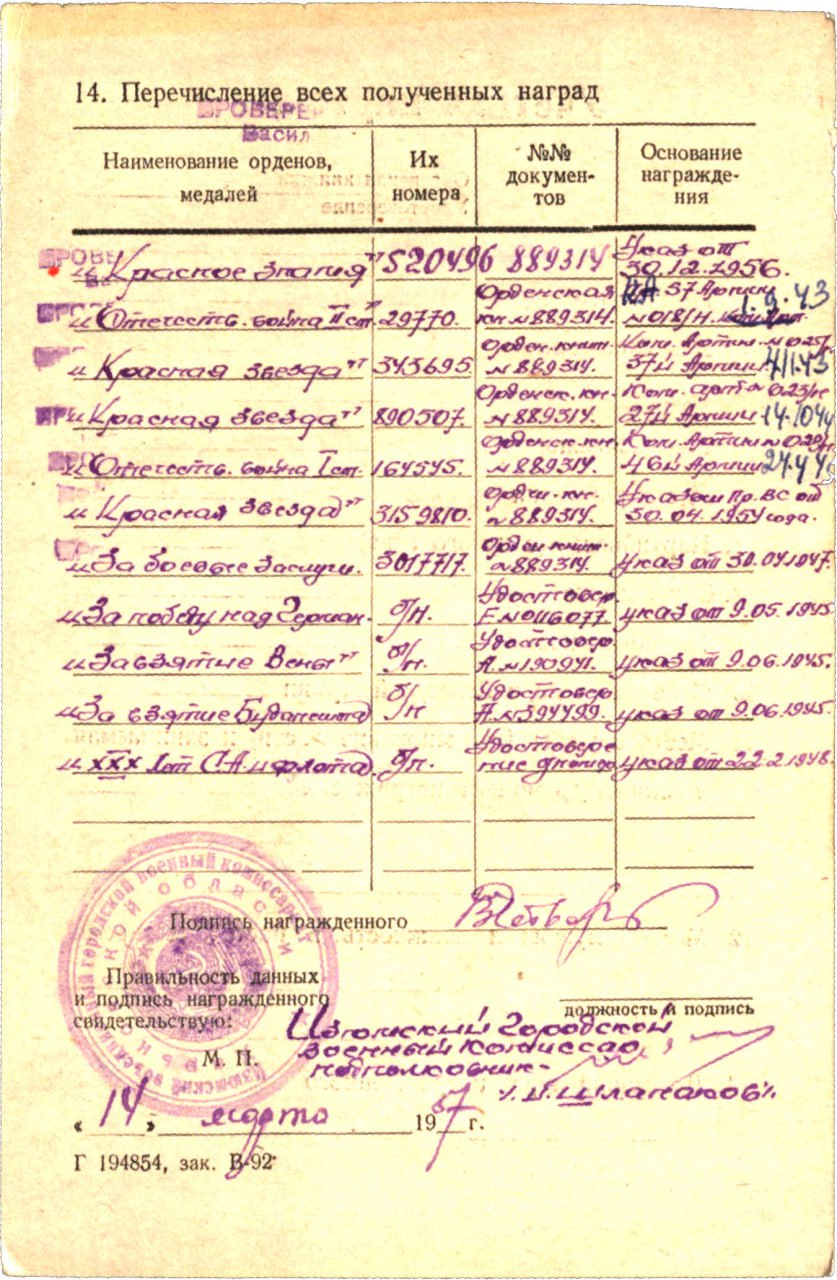 14. Перечисление всех полученных наград
ПРОВЕРЕ
Васил
Наименование орденов, медалей
Их номера
№№ документов
Основание награждения
„Красное Знамя" 520496 889314 Указ от 30.12.1956.
„Отечеств. война II ст." 29770. Орденская кн. № 889314. 37 Армии № 018/н. 1.9.43
„Красная звезда" 343695 Орден. книж. № 889314. 37й Армии
„Красная звезда" 890507. Орденск. кн. № 889314. 27й Армии
„Отечеств. война I ст. 164545. Орденск. кн. № 889314. 46й Армии
„Красная звезда" 3159810. Орден. кн. № 889314. Указом Пр. ВС от 30.04.1954 года.
„За боевые заслуги. 3017717. Орден. книж. № 889314. указ от 30.04.1947.
„За победу над Герман. б/н. Удостовер. Е № 0116077 указ от 9.05.1945.
„За взятие Вены" б/н. Удостовер. А. № 190941. указ от 9.06.1945.
„За взятие Будапешта б/н Удостовер А. № 394499. указ от 9.06.1945.
„XXX лет С.А. и флота б/н. Удостоверение указ от 22.2.1948.
Подпись награжденного
Правильность данных
и подпись награжденного
свидетельствую:
должность и подпись
М. П.
Изюмский Городской
военный комиссар
подполковник
Шлапаков
„14" марта 1957 г.
Г 194854, зак. В-92